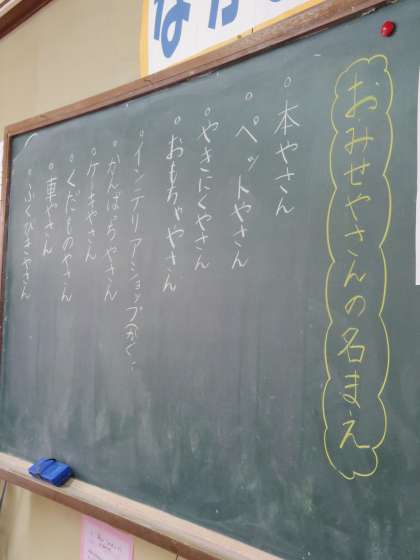 なか
おみせやさんの名まえ
。本やさん
。ペットやさん
。やきにくやさん
。おもちゃやさん
。インテリアショップ(かぐ:
。かんばっちやさん
。ケーキやさん
。くだものやさん
。車やさん
。ふくびきやさん